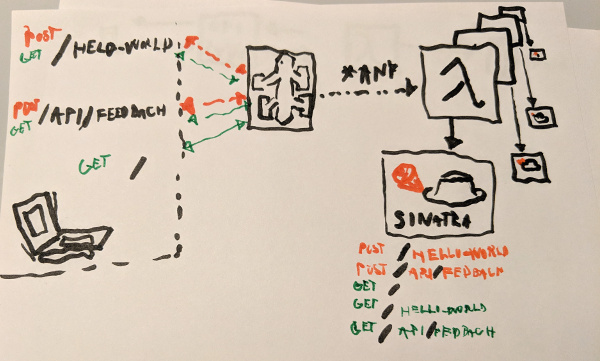 POST
GET /HELO-WORLD
POST
GET /API/FEEDBACH
GET /
*ANY
λ
SINATRA
POST /HELLO-WORLD
POST /API/FEDBACH
GET /
GET /HELLO-WORLD
GET /API/FEDBACH